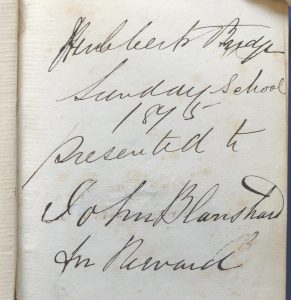 Hubberts Bridge
Sunday School
1875
presented to
John Blanshard
In Reward